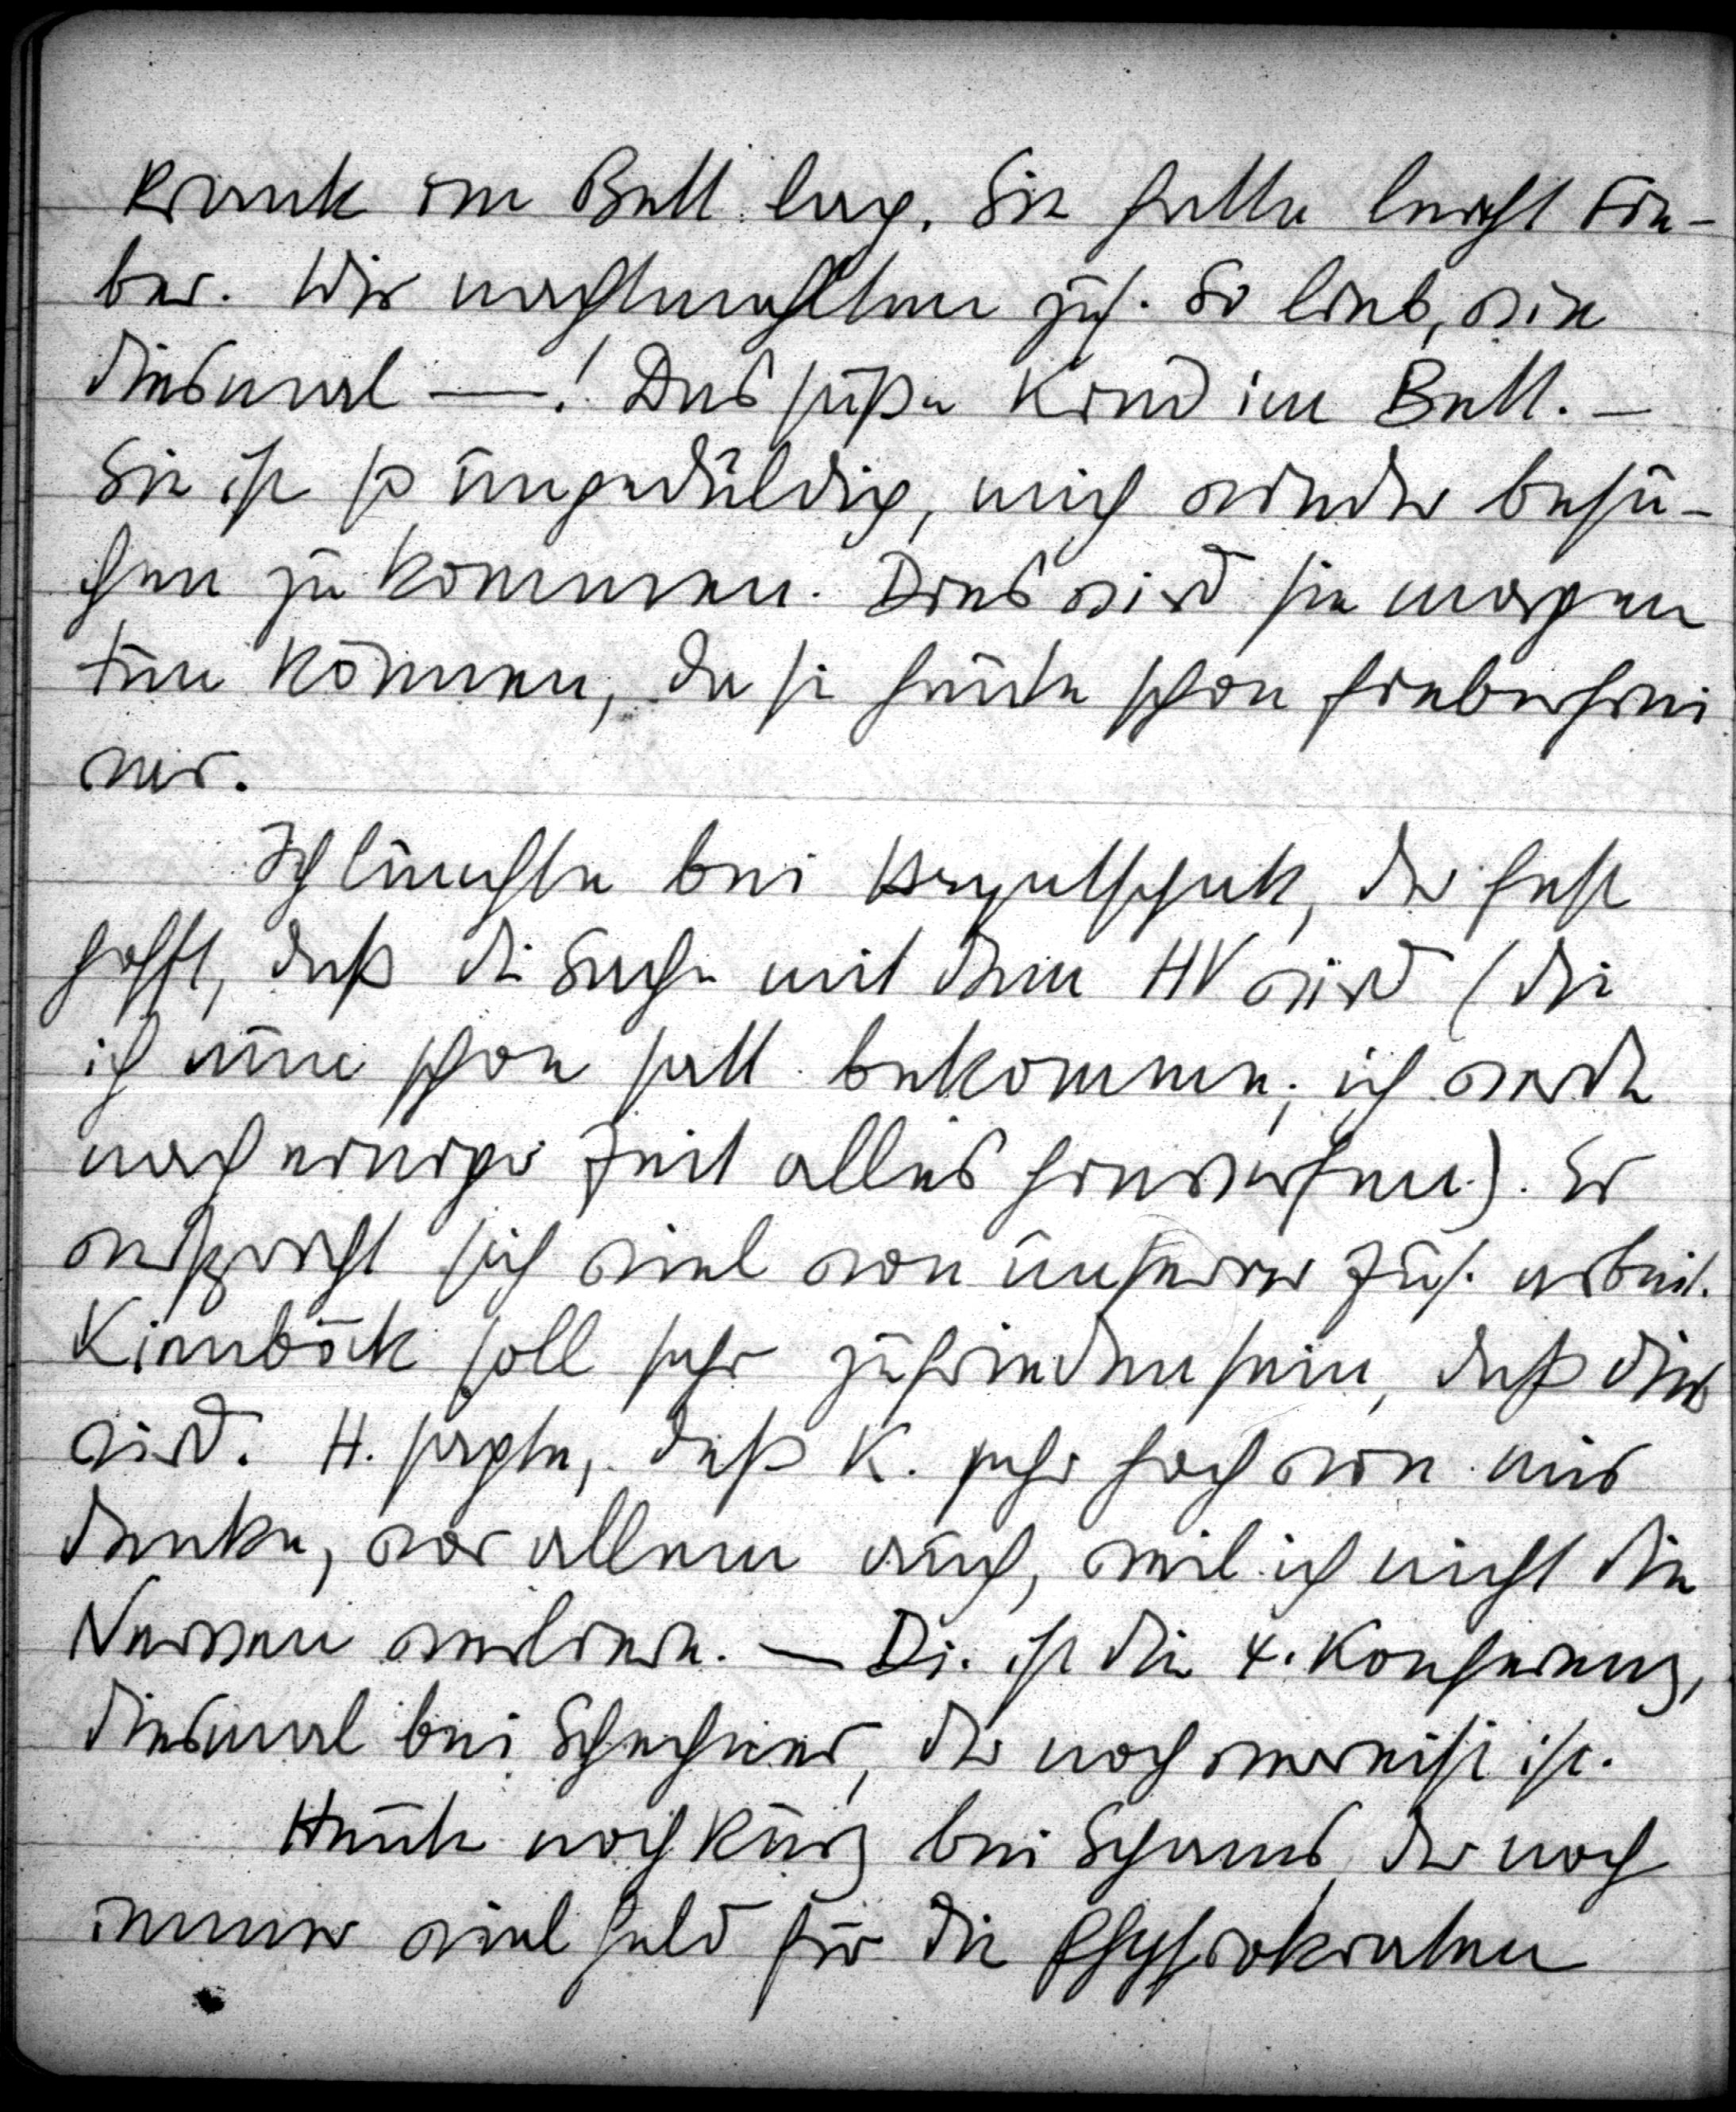 krank im Bett lag. Sie hatte leicht Fie-
ber. Wir nachtmahlten zus. So lieb, wie
diesmal —! Das süße Kind im Bett. —
Sie ist so ungeduldig, mich wieder besu-
chen zu kommen. Dies wird sie morgen
tun können, da sie heute schon fieberfrei
war.
Ich lunchte bei, der fest
hofft, daß die Sache mit dem HV wird (die
ich nun schon satt bekomme; ich werde
nach einiger Zeit alles hinwerfen). Er
verspricht sich viel von unserer Zus. arbeit.
Kienböck soll sehr zufrieden sein, daß dies
wird. H. sagte, daß K. sehr hoch von mir
denke, vor allem auch, weil ich nicht die
Nerven verliere. — Di. ist die 4. Konferenz,
diesmal bei Schechner, der noch verreist ist.
Heute noch kurz bei Schams, der noch
immer viel Geld für die Physiokraten